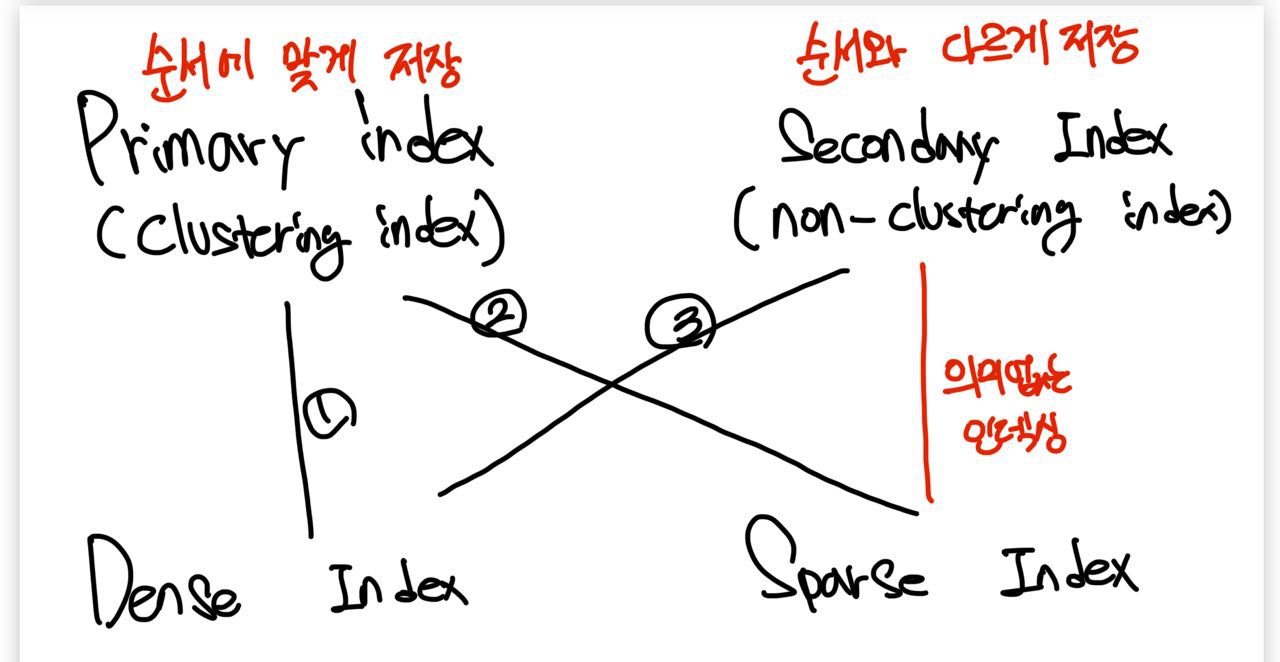 순서에 맞게 저장
Primary index
(Clustering index)
순서와 다르게 저장
Secondary Index
(non-clustering index)
①
②
③
의미없는
인덱싱
Dense Index
Sparse Index